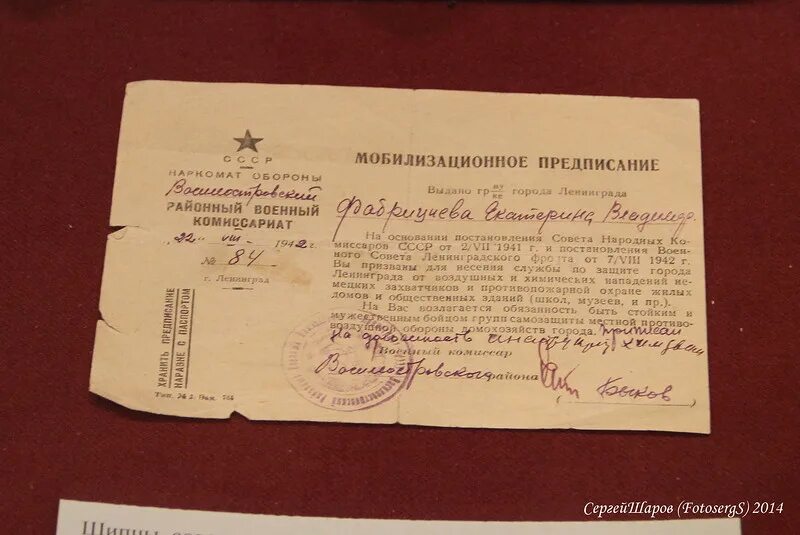 СССР
НАРКОМАТ ОБОРОНЫ
Васильостровский
РАЙОННЫЙ ВОЕННЫЙ
КОМИССАРИАТ
"22" VIII 1942 г.
№ 84
г. Ленинград
ХРАНИТЬ ПРЕДПИСАНИЕ
НАРАВНЕ С ПАСПОРТОМ
МОБИЛИЗАЦИОННОЕ ПРЕДПИСАНИЕ
Выдано гр. му/ке города Ленинграда
Фабрициева Екатерина Владимир.
На основании постановления Совета Народных Ко-
миссаров СССР от 2/VII 1941 г. и постановления Воен-
ного Совета Ленинградского фронта от 7/VIII 1942 г.
Вы призваны для несения службы по защите города
Ленинграда от воздушных и химических нападений не-
мецких захватчиков и противопожарной охране жилых
домов и общественных зданий (школ, музеев, и пр.).
На Вас возлагается обязанность быть стойким и
мужественным бойцом групп самозащиты местной противо-
воздушной обороны домохозяйств города.
на должность инструктора
Военный комиссар
Васильостровского района
(Быков)
Тип.
Щипцы
СергейШаров (FotosergS) 2014